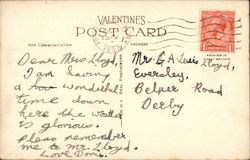 VALENTINE'S
POST CARD
FOR COMMUNICATION
ADDRESS
Dear Mrs Lloyd,
I am having
a wonderful
time down
here the weather
is glorious.
please remember
me to Mr. Lloyd.
Love Doris.
Mrs G A Lewis Lloyd,
Eversley,
Belper Road
Derby